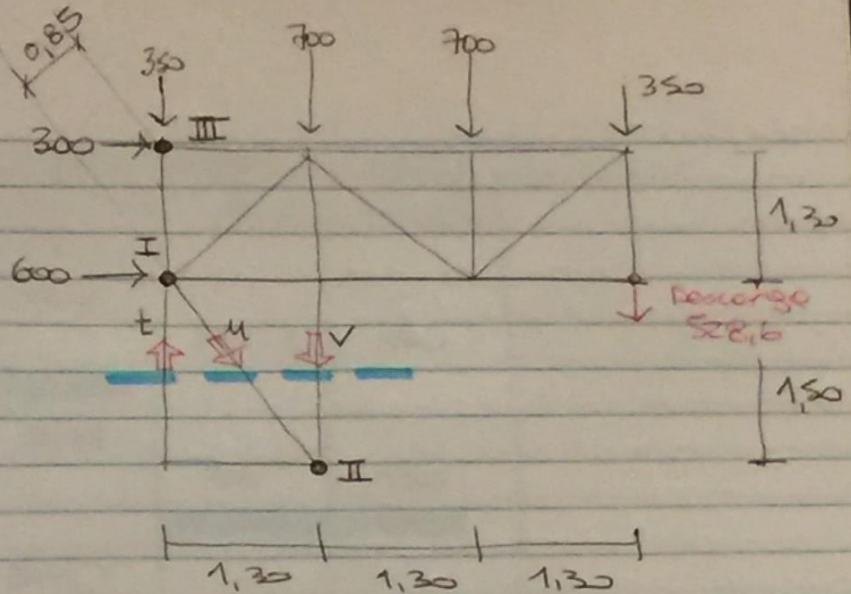 0,85
350
700
700
350
300
III
1,30
I
600
Descarga
528,6
t
u
V
1,50
II
1,30
1,30
1,30